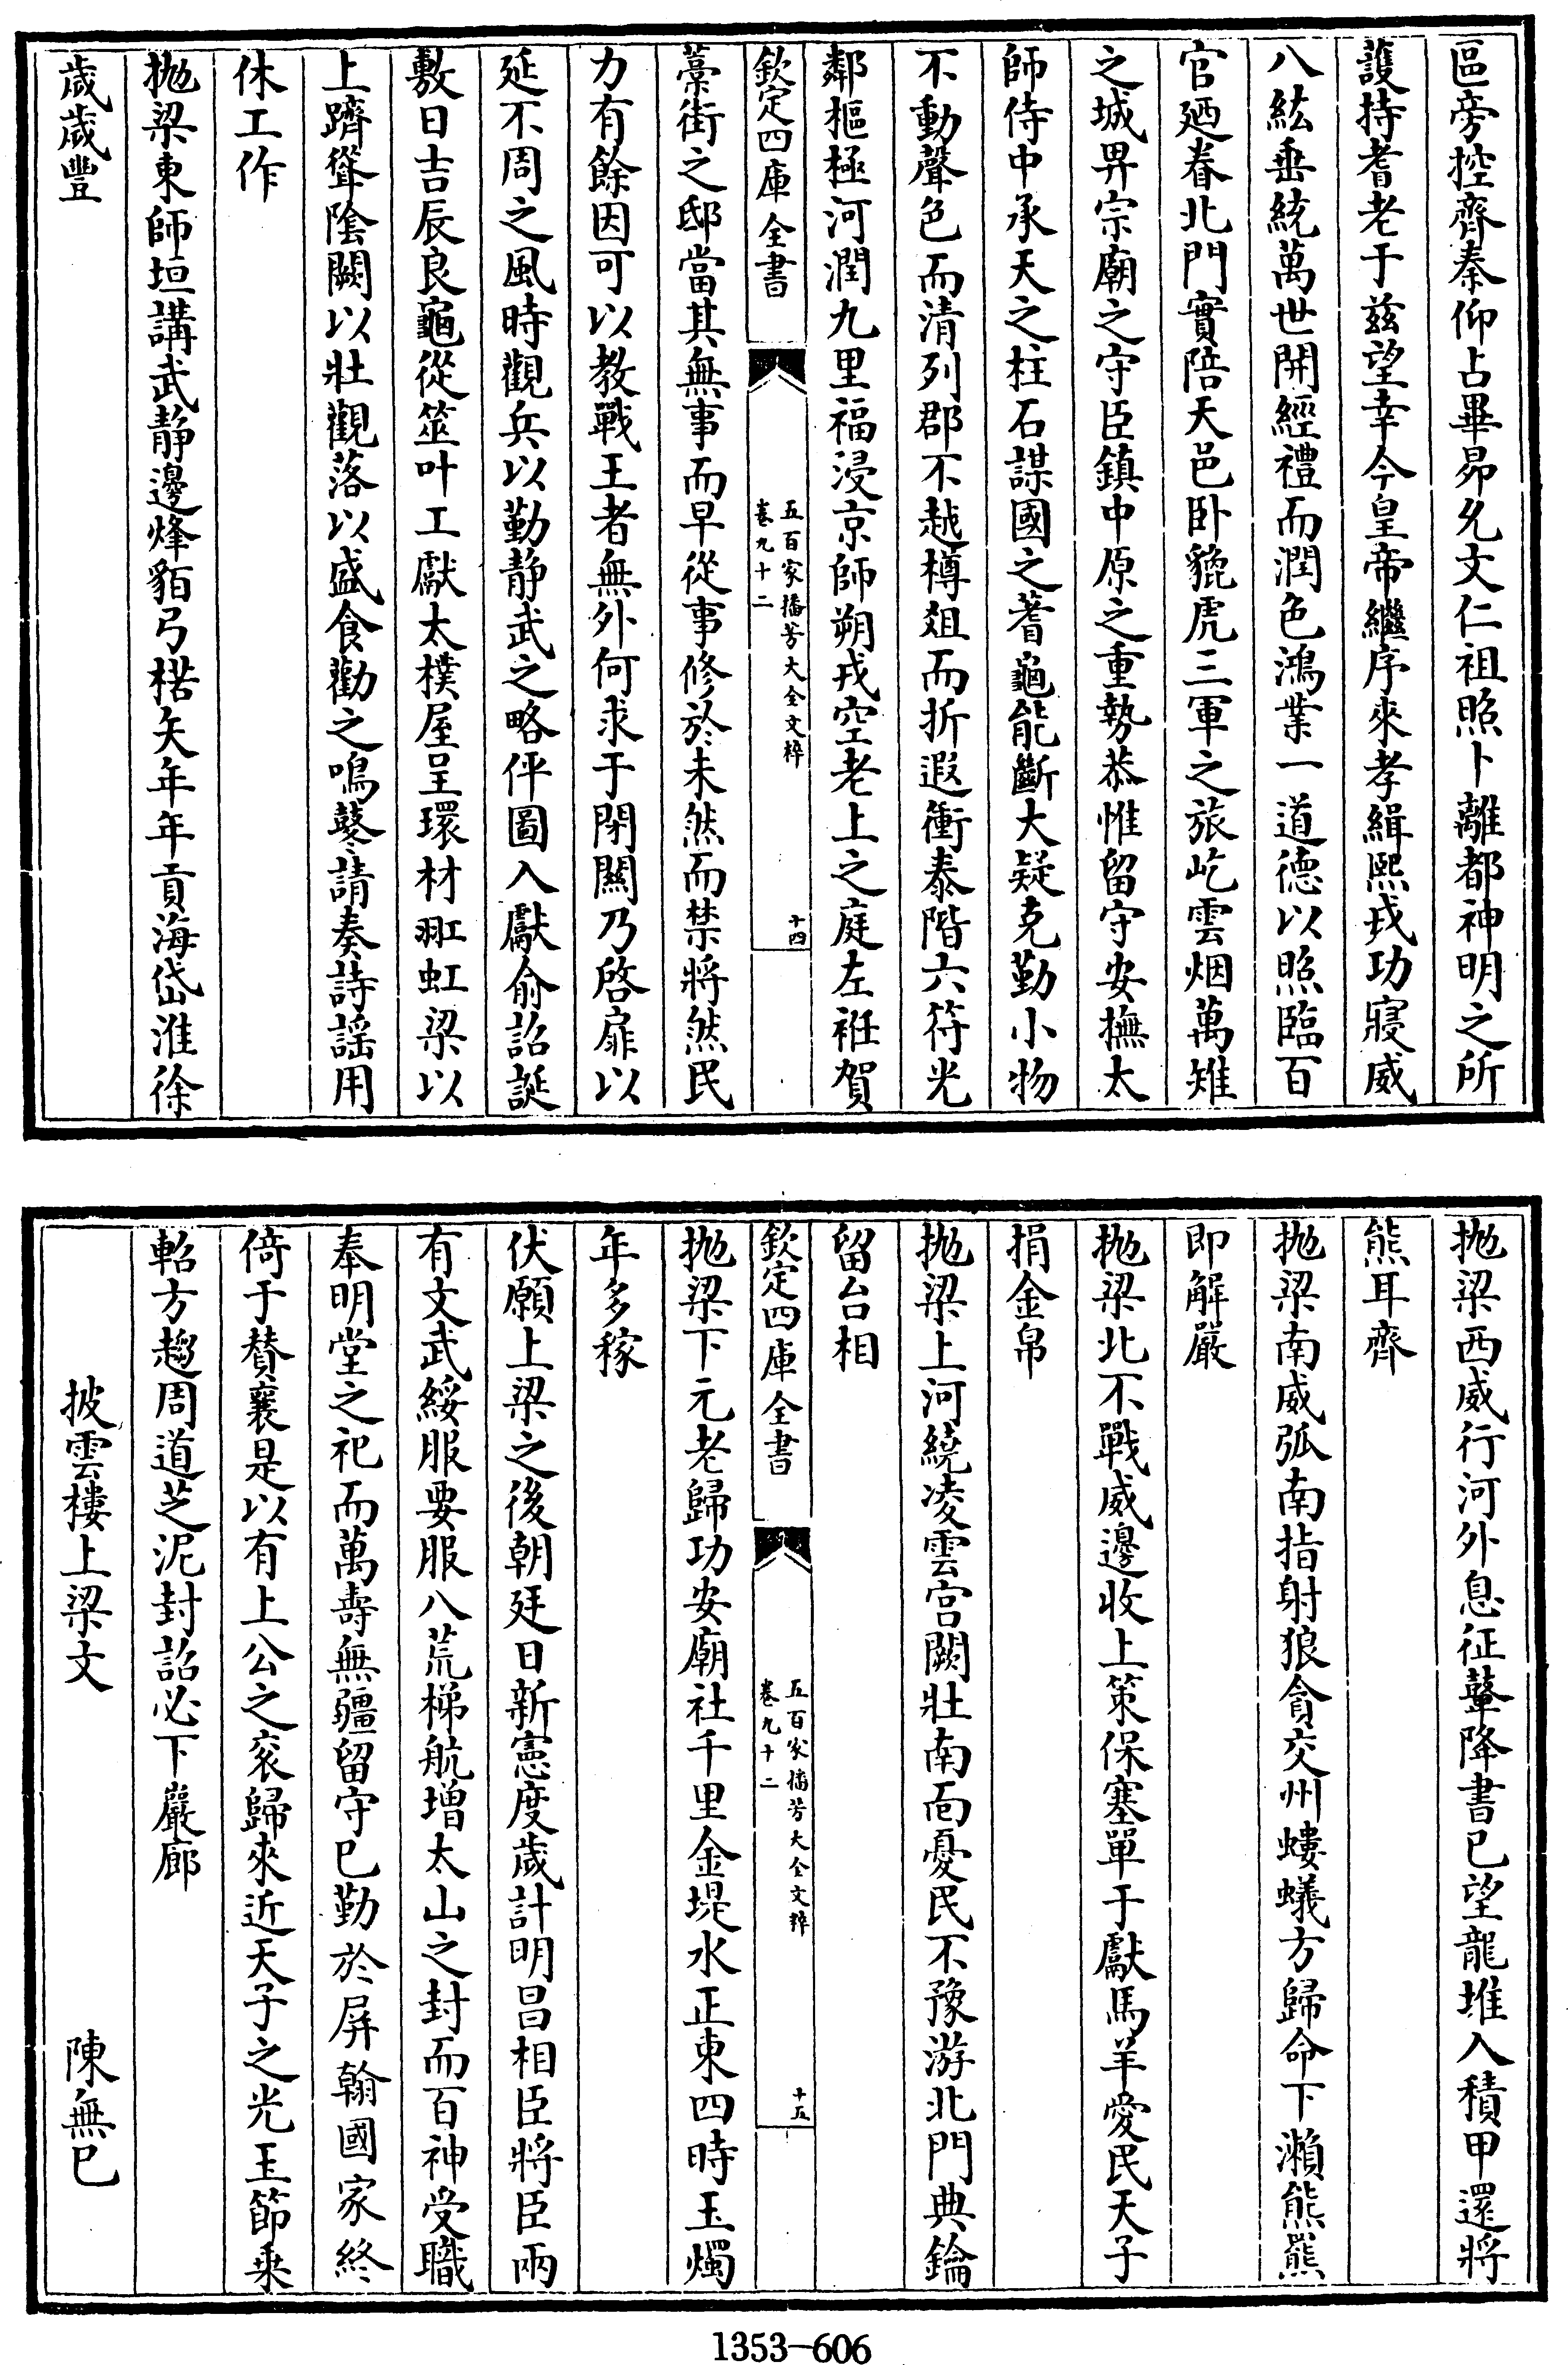 區旁控齊秦仰占畢昴允文仁祖照卜離都神明之所
護持耆老于兹望幸今皇帝繼序來孝緝熙戎功寢威
八紘垂統萬世開經禮而潤色鴻業一道德以照臨百
官廼眷北門實陪天邑卧貔虎三軍之旅屹雲烟萬雉
之城畀宗廟之守臣鎮中原之重勢恭惟留守安撫太
師侍中承天之柱石謀國之蓍龜能斷大疑克勤小物
不動聲色而清列郡不越樽俎而折遐衝泰階六符光
鄰樞極河潤九里福浸京師朔戎空老上之庭左袵賀
欽定四庫全書
五百家播芳大全文粹
卷九十二
十四
藁街之邸當其無事而早從事修於未然而禁將然民
力有餘因可以教戰王者無外何求于閉關乃啓扉以
延不周之風時觀兵以勤静武之略伻圖入獻俞詔誕
敷日吉辰良龜從筮叶工獻太樸屋呈環材䎕虹梁以
上躋聳陰闕以壯觀落以盛食勸之鳴鼛請奏詩謡用
休工作
抛梁東師垣講武静邊烽貊弓楛矢年年貢海岱淮徐
歲歲豐
抛梁西威行河外息征鼙降書已望龍堆入積甲還將
熊耳齊
抛梁南威弧南指射狼貪交州螻蟻方歸命下瀨熊羆
即解嚴
抛梁北不戰威邊收上策保塞單于獻馬羊愛民天子
捐金帛
抛梁上河繞凌雲宫闕壯南面憂民不豫游北門典鑰
留台相
欽定四庫全書
五百家播芳大全文粹
卷九十二
十五
抛梁下元老歸功安廟社千里金堤水正東四時玉燭
年多稼
伏願上梁之後朝廷日新憲度歲計明昌相臣將臣兩
有文武綏服要服八荒梯航增太山之封而百神受職
奉明堂之祀而萬壽無疆留守已勤於屏翰國家終
倚于賛襄是以有上公之衮歸來近天子之光玉節乗
軺方趨周道芝泥封詔必下巖廊
披雲樓上梁文　陳無已
1353—606